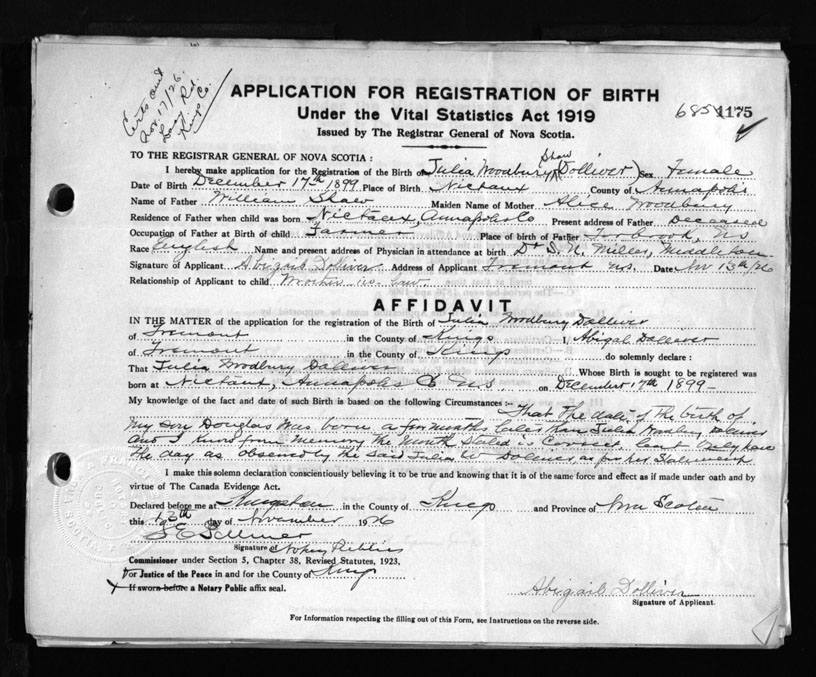 Certs and
Nov. 17/26.
Rd.
Kings Co.
APPLICATION FOR REGISTRATION OF BIRTH
Under the Vital Statistics Act 1919
Issued by The Registrar General of Nova Scotia.
1175
TO THE REGISTRAR GENERAL OF NOVA SCOTIA :
Shaw
I hereby make application for the Registration of the Birth of Julia Woodbury (Dolliver) Sex Female
Date of Birth December 17th 1899 Place of Birth Nictaux County of Annapolis
Name of Father William Shaw Maiden Name of Mother Alice Woodbury
Residence of Father when child was born Nictaux, Annapolis Co Present address of Father Deceased
Occupation of Father at Birth of child Farmer Place of birth of Father Torbrook, N.S
Race English Name and present address of Physician in attendance at birth Dr Miller, Middleton
Signature of Applicant Abigail Dolliver Address of Applicant Tremont N.S. Date Nov 13th/26
Relationship of Applicant to child Mother in law
AFFIDAVIT
IN THE MATTER of the application for the registration of the Birth of Julia Woodbury Dolliver
of Tremont in the County of Kings I, Abigail Dolliver
of Tremont in the County of Kings do solemnly declare :
That Julia Woodbury Dolliver Whose Birth is sought to be registered was
born at Nictaux, Annapolis Co N.S on December 17th 1899
My knowledge of the fact and date of such Birth is based on the following Circumstances :- That the date of the birth of
My Son Douglas was born a few months later than Julia Woodbury Dolliver
and I know from memory the month stated is correct, but only have
the day as observed by the said Julia W Dolliver as for her Statement
I make this solemn declaration conscientiously believing it to be true and knowing that it is of the same force and effect as if made under oath and by
virtue of The Canada Evidence Act.
Declared before me at Kingston in the County of Kings and Province of Nova Scotia
this 13th day of November 1926
Signature of Notary Public
Commissioner under Section 5, Chapter 38, Revised Statutes, 1923.
or Justice of the Peace in and for the County of Kings
If sworn before a Notary Public affix seal.
Abigail Dolliver
Signature of Applicant.
For Information respecting the filling out of this Form, see Instructions on the reverse side.